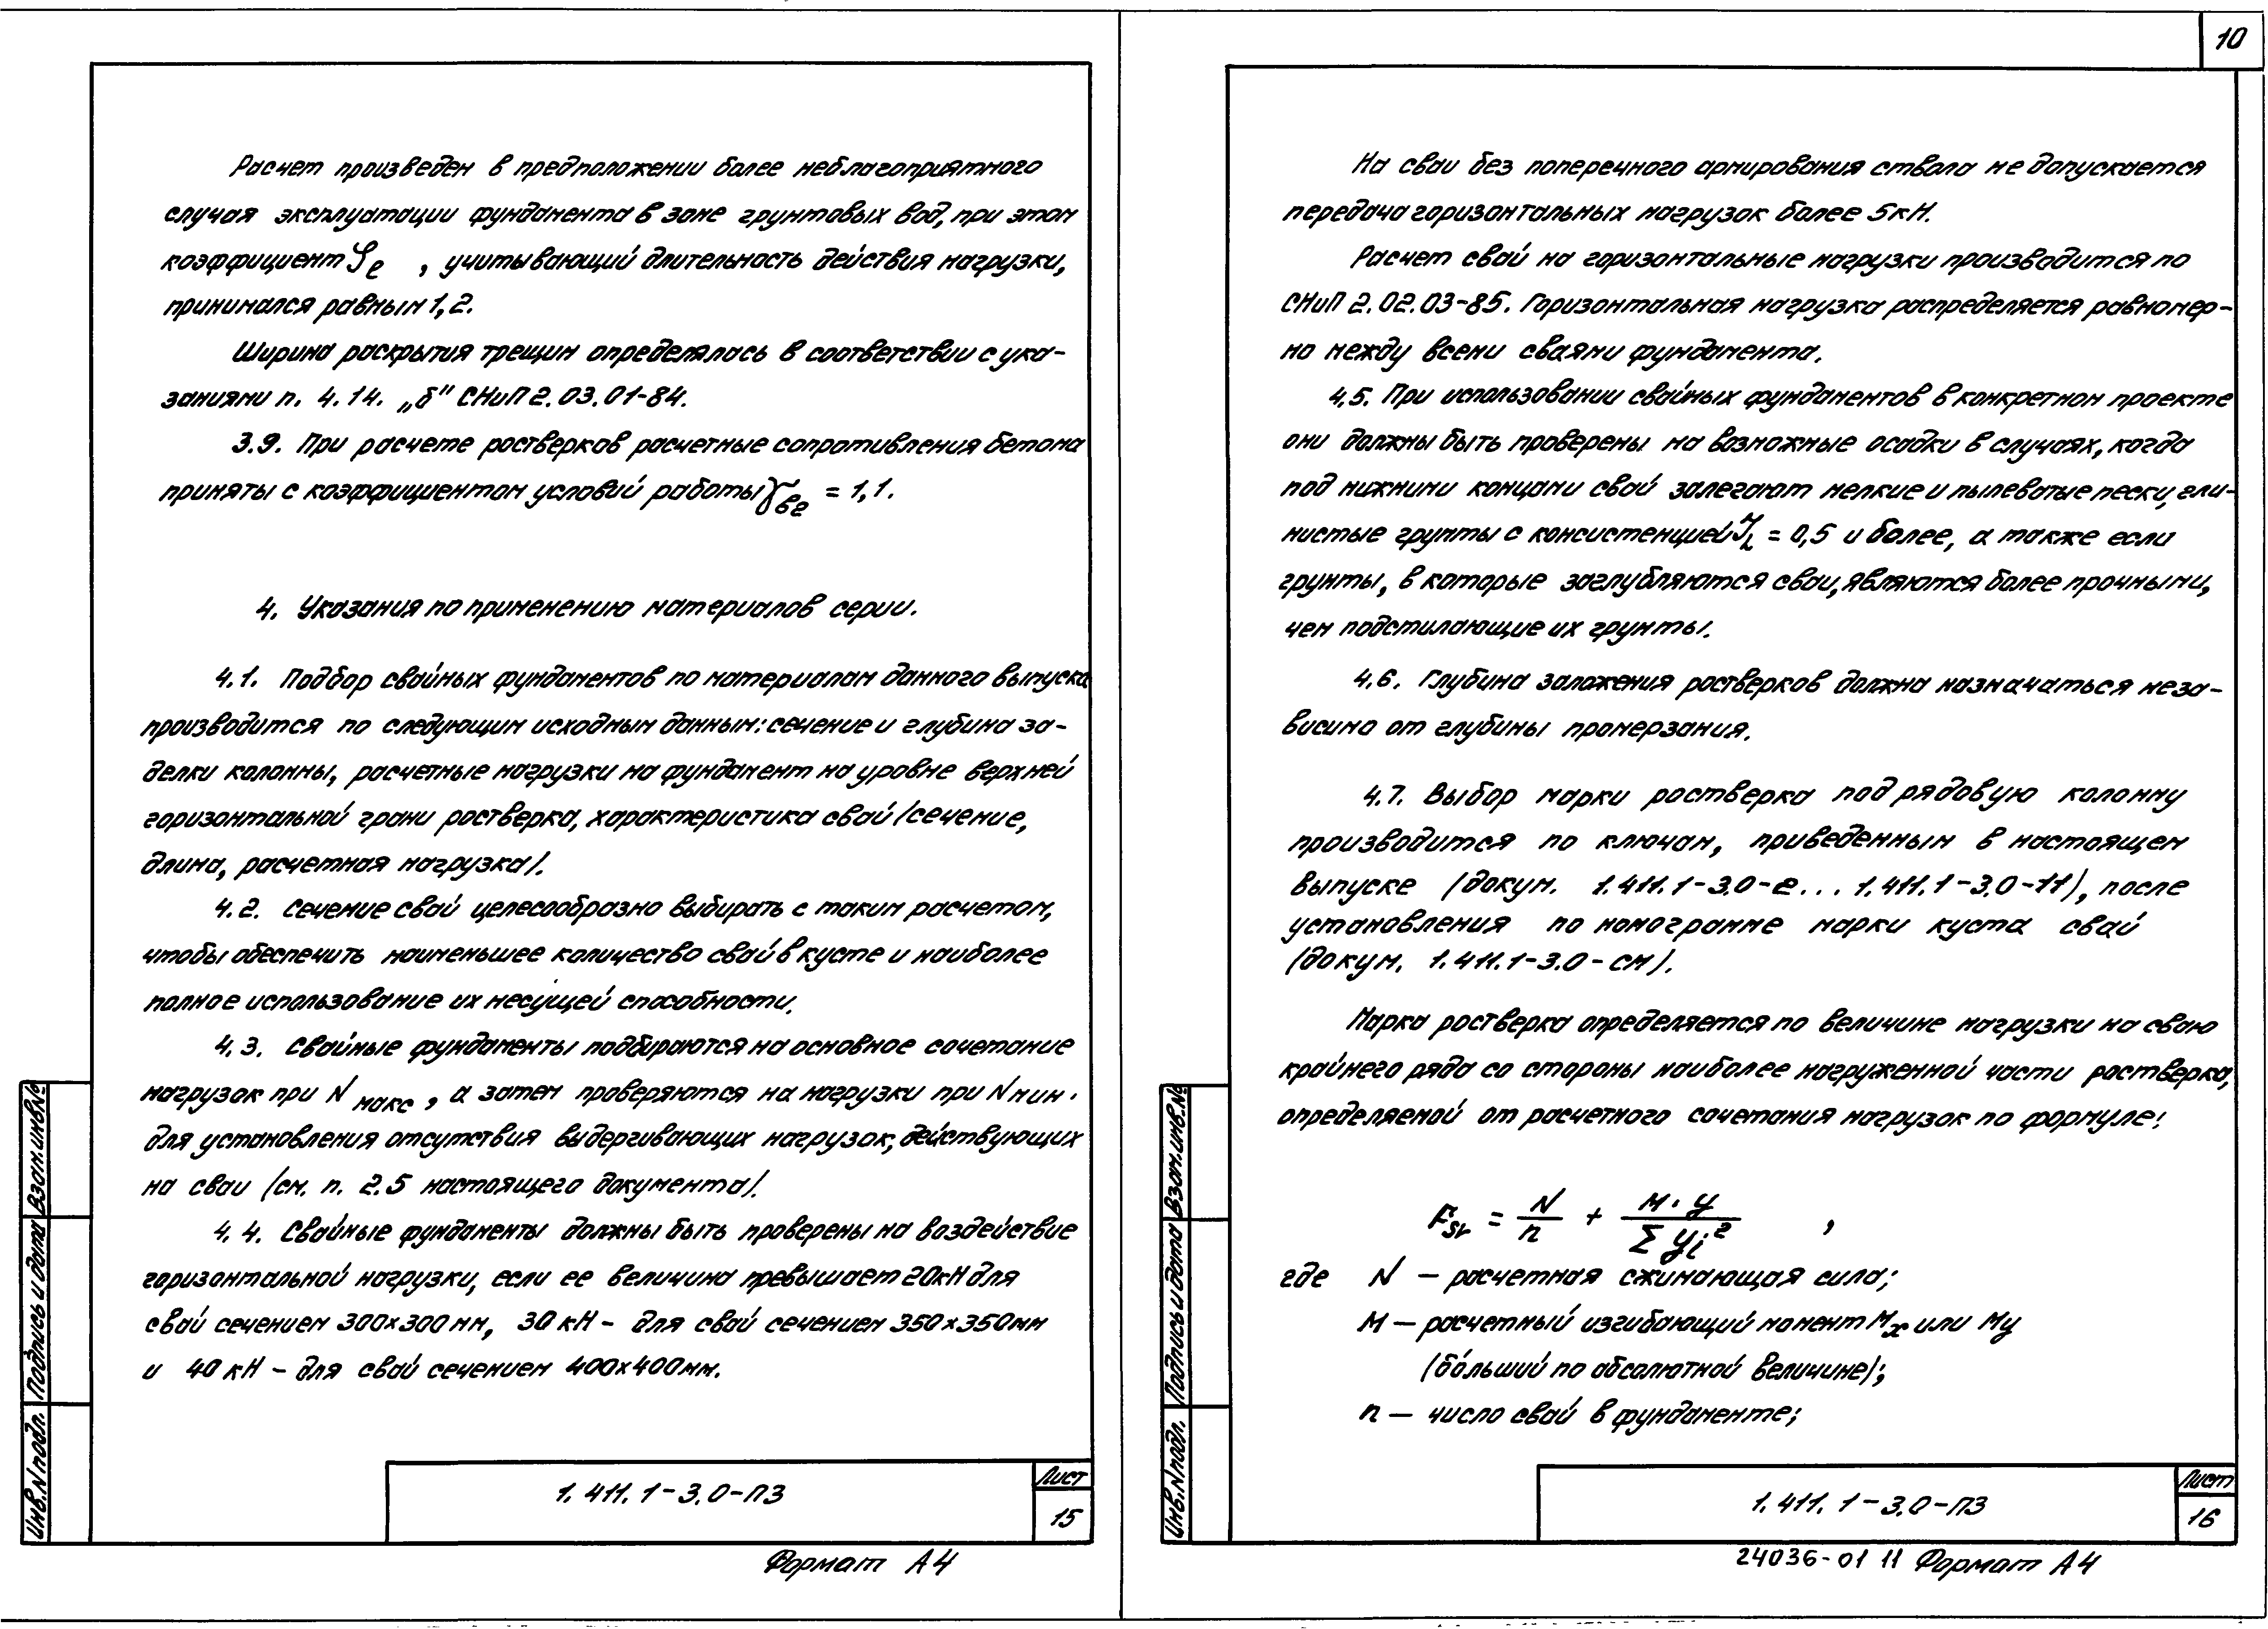 Расчет произведен в предположении более неблагоприятного
случая эксплуатации фундамента в зоне грунтовых вод, при этом
коэффициент φℓ , учитывающий длительность действия нагрузки,
принимался равным 1,2.
Ширина раскрытия трещин определялась в соответствии с ука-
заниями п. 4.14. „б" СНиП 2.03.01-84.
3.9. При расчете ростверков расчетные сопротивления бетона
приняты с коэффициентом условий работы γб2 = 1,1.
4. Указания по применению материалов серии.
4.1. Подбор свайных фундаментов по материалам данного выпуска
производится по следующим исходным данным: сечение и глубина за-
делки колонны, расчетные нагрузки на фундамент на уровне верхней
горизонтальной грани ростверка, характеристика свай /сечение,
длина, расчетная нагрузка/.
4.2. Сечение свай целесообразно выбирать с таким расчетом,
чтобы обеспечить наименьшее количество свай в кусте и наиболее
полное использование их несущей способности.
4.3. Свайные фундаменты подбираются на основное сочетание
нагрузок при N макс , а затем проверяются на нагрузки при N мин.
для установления отсутствия выдергивающих нагрузок, действующих
на сваи /см. п. 2.5 настоящего документа/.
4.4. Свайные фундаменты должны быть проверены на воздействие
горизонтальной нагрузки, если ее величина превышает 20кН для
свай сечением 300×300 мм, 30 кН – для свай сечением 350×350мм
и 40 кН – для свай сечением 400×400мм.
Взам.инв.№
Подпись и дата
Инв.N подл.
1.411.1-3.0-ПЗ
Лист
15
Формат А4
10
На сваи без поперечного армирования ствола не допускается
передача горизонтальных нагрузок более 5кН.
Расчет свай на горизонтальные нагрузки производится по
СНиП 2.02.03-85. Горизонтальная нагрузка распределяется равномер-
но между всеми сваями фундамента.
4.5. При использовании свайных фундаментов в конкретном проекте
они должны быть проверены на возможные осадки в случаях, когда
под нижними концами свай залегают мелкие и пылеватые пески, гли-
нистые грунты с консистенцией JL = 0,5 и более, а также если
грунты, в которые заглубляются сваи, являются более прочными,
чем подстилающие их грунты.
4.6. Глубина заложения ростверков должна назначаться неза-
висимо от глубины промерзания.
4.7. Выбор марки ростверка под рядовую колонну
производится по ключам, приведенным в настоящем
выпуске (докум. 1.411.1-3.0-2... 1.411.1-3.0-11), после
установления по номограмме марки куста свай
(докум. 1.411.1-3.0-СМ).
Марка ростверка определяется по величине нагрузки на сваю
крайнего ряда со стороны наиболее нагруженной части ростверка,
определяемой от расчетного сочетания нагрузок по формуле:
Fsv = N/n + M·y/Σ yi² ,
где N – расчетная сжимающая сила;
M – расчетный изгибающий момент Mx или My
(бо́льший по абсолютной величине);
n – число свай в фундаменте;
Взам.инв.№
Подпись и дата
Инв.N подл.
1.411.1-3.0-ПЗ
Лист
16
24036-01 11 Формат А4